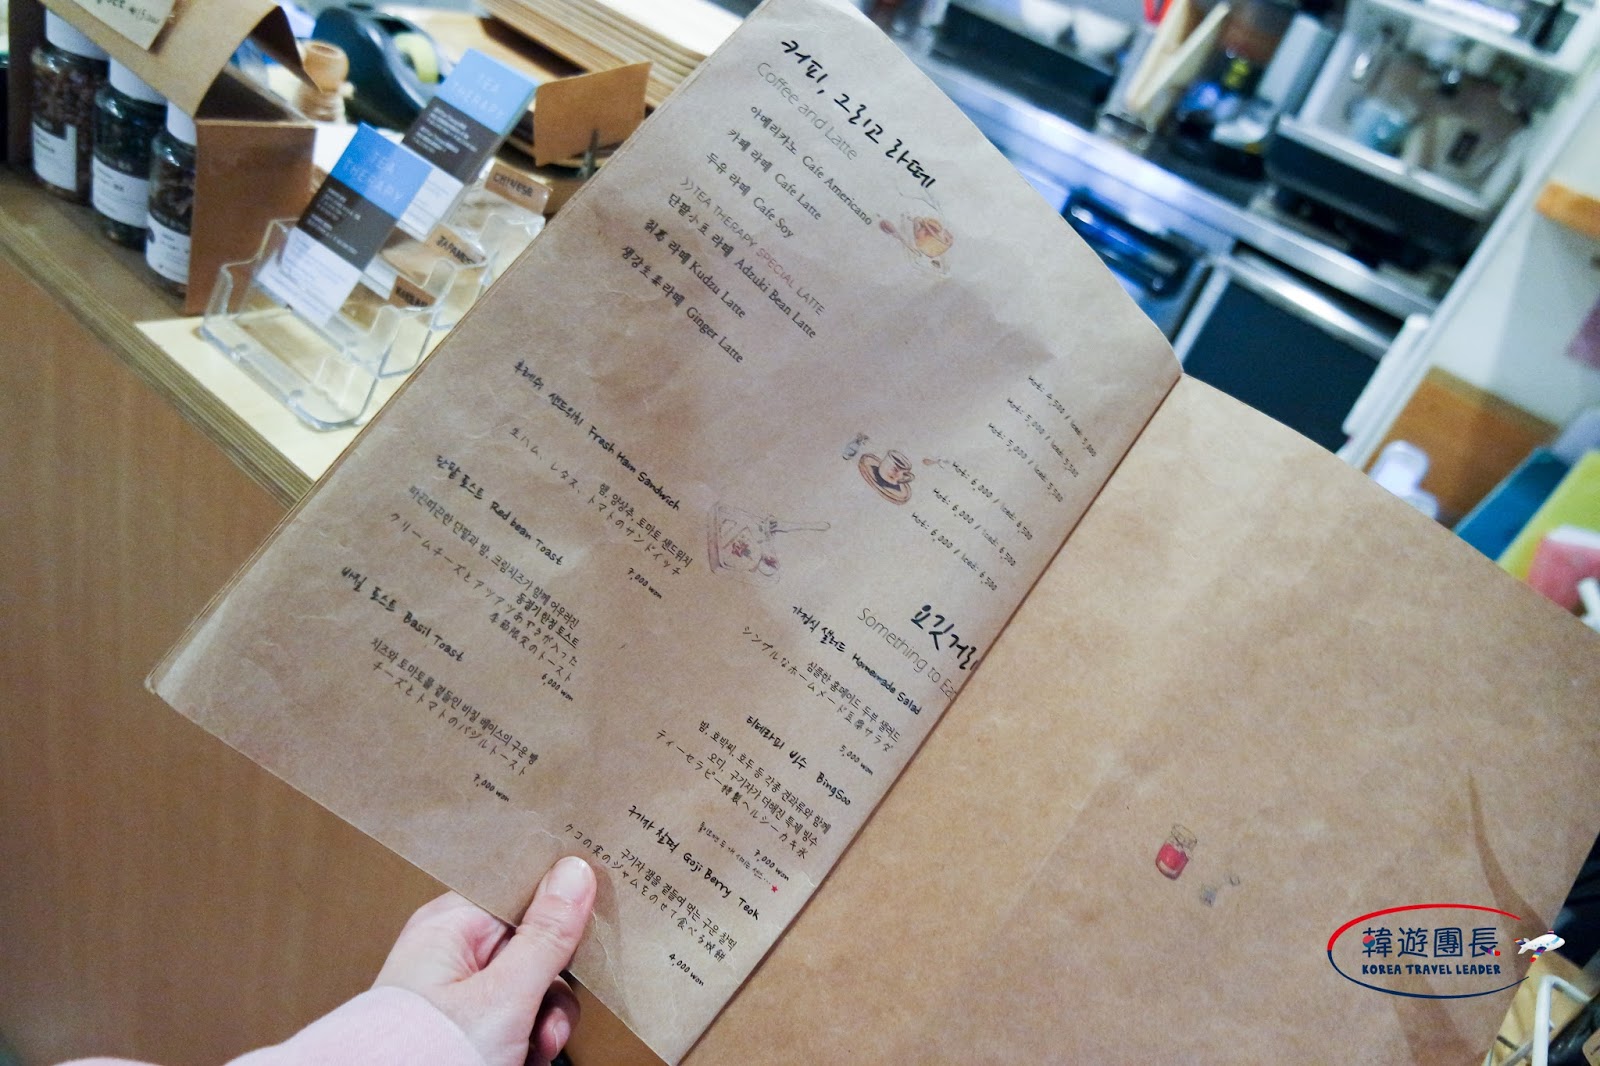 커피, 그리고 라떼
Coffee and Latte
아메리카노 Cafe Americano
Hot: 4,500 / Iced: 5,000
카페 라떼 Cafe Latte
Hot: 5,000 / Iced: 5,500
두유 라떼 Cafe Soy
Hot: 5,000 / Iced: 5,500
>>TEA THERAPY SPECIAL LATTE
단팥小豆 라떼 Adzuki Bean Latte
Hot: 6,000 / Iced: 6,500
칡葛 라떼 Kudzu Latte
Hot: 6,000 / Iced: 6,500
생강生薑라떼 Ginger Latte
Hot: 6,000 / Iced: 6,500
요깃거리
Something to Eat
후레쉬 샌드위치 Fresh Ham Sandwich
햄, 양상추, 토마토 샌드위치
生ハム、レタス、トマトのサンドイッチ
7,000 won
단팥 토스트 Red bean Toast
따끈따끈한 단팥과 밤, 크림치즈가 함께 어우러진
동절기 한정 토스트
クリームチーズとアツアツあずきが入った
季節限定のトースト
6,000 won
바질 토스트 Basil Toast
치즈와 토마토를 곁들인 바질 페이스의 구운 빵
チーズとトマトのバジルトースト
7,000 won
가정식 샐러드 Homemade Salad
심플한 홈메이드 두부 샐러드
シンプルなホームメード豆腐サラダ
5,000 won
티테라피 빙수 BingSoo
밤, 호박씨, 호두 등 각종 견과류와 함께
오디, 구기자가 더해진 특제 빙수
ティーセラピー特製ヘルシーカキ氷
7,000 won
구기자 찰떡 Goji Berry Teok
구기자 잼을 곁들여 먹는 구운 찰떡
クコの実のジャムをのせて食べる焼餅
4,000 won
TEA THERAPY
TEA THERAPY
CHINESE
JAPANESE
韓遊團長
KOREA TRAVEL LEADER